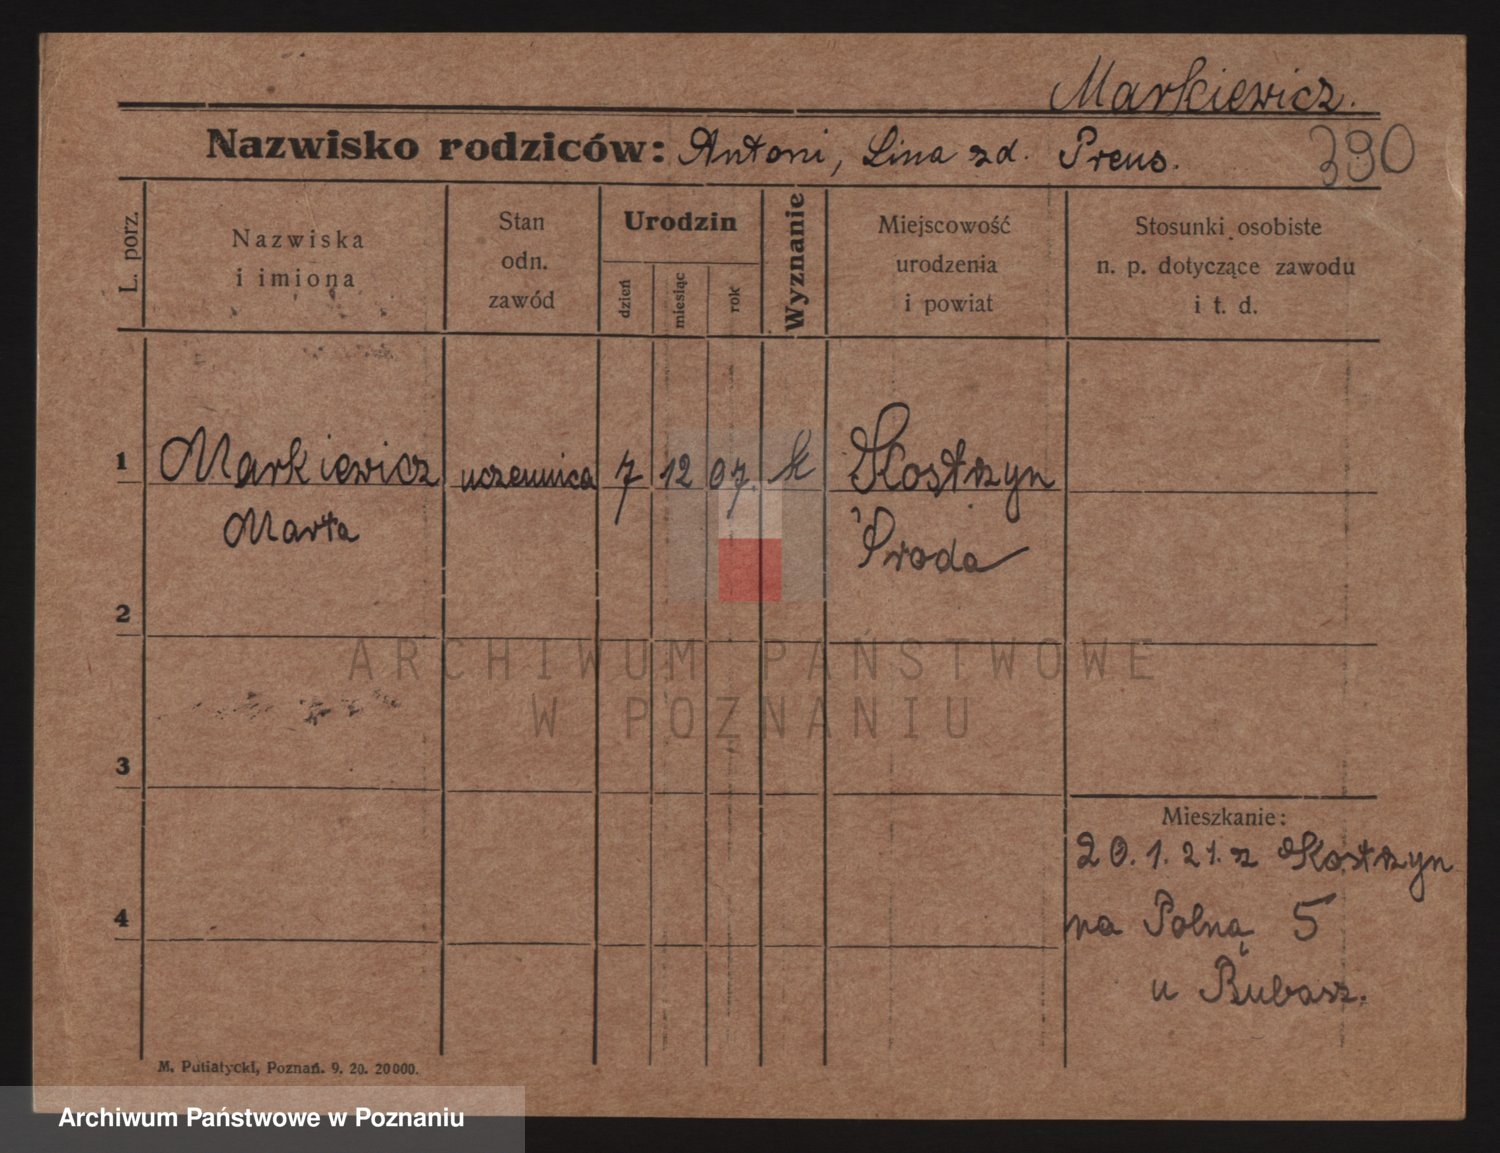 Markiewicz.
Nazwisko rodziców: Antoni, Lina zd. Preus.
390
L. porz.
Nazwiska
i imiona
Stan
odn.
zawód
Urodzin
dzień
miesiąc
rok
Wyznanie
Miejscowość
urodzenia
i powiat
Stosunki osobiste
n. p. dotyczące zawodu
i t. d.
1 Markiewicz uczennica 7 12 07. k Kostrzyn
Marta Środa
2
3
Mieszkanie:
20.1.21. z Kostrzyn
4
na Polną 5
u Bubasz.
M. Putiatycki, Poznań. 9. 20. 20000.
ARCHIWUM PAŃSTWOWE
W POZNANIU
Archiwum Państwowe w Poznaniu